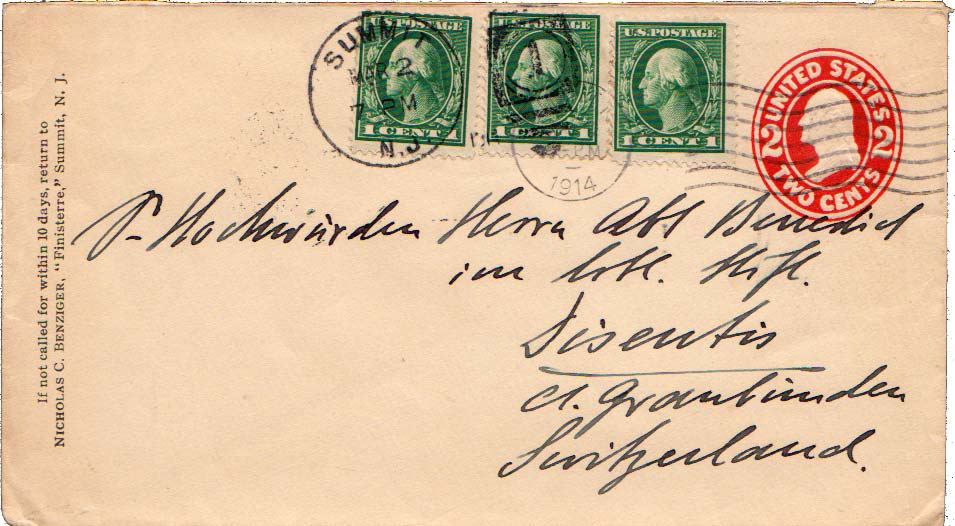 If not called for within 10 days, return to
NICHOLAS C. BENZIGER, "Finisterre," Summit, N. J.
U.S. POSTAGE
1 CENT 1
U.S. POSTAGE
1 CENT 1
U.S. POSTAGE
1 CENT 1
SUMMIT
MAR 2
7 PM
N.J.
1
1914
UNITED STATES
2 2
TWO CENTS
Hochwürden Herrn Abt Benedict
im löbl. Stift.
Disentis
Ct. Graubünden
Switzerland.